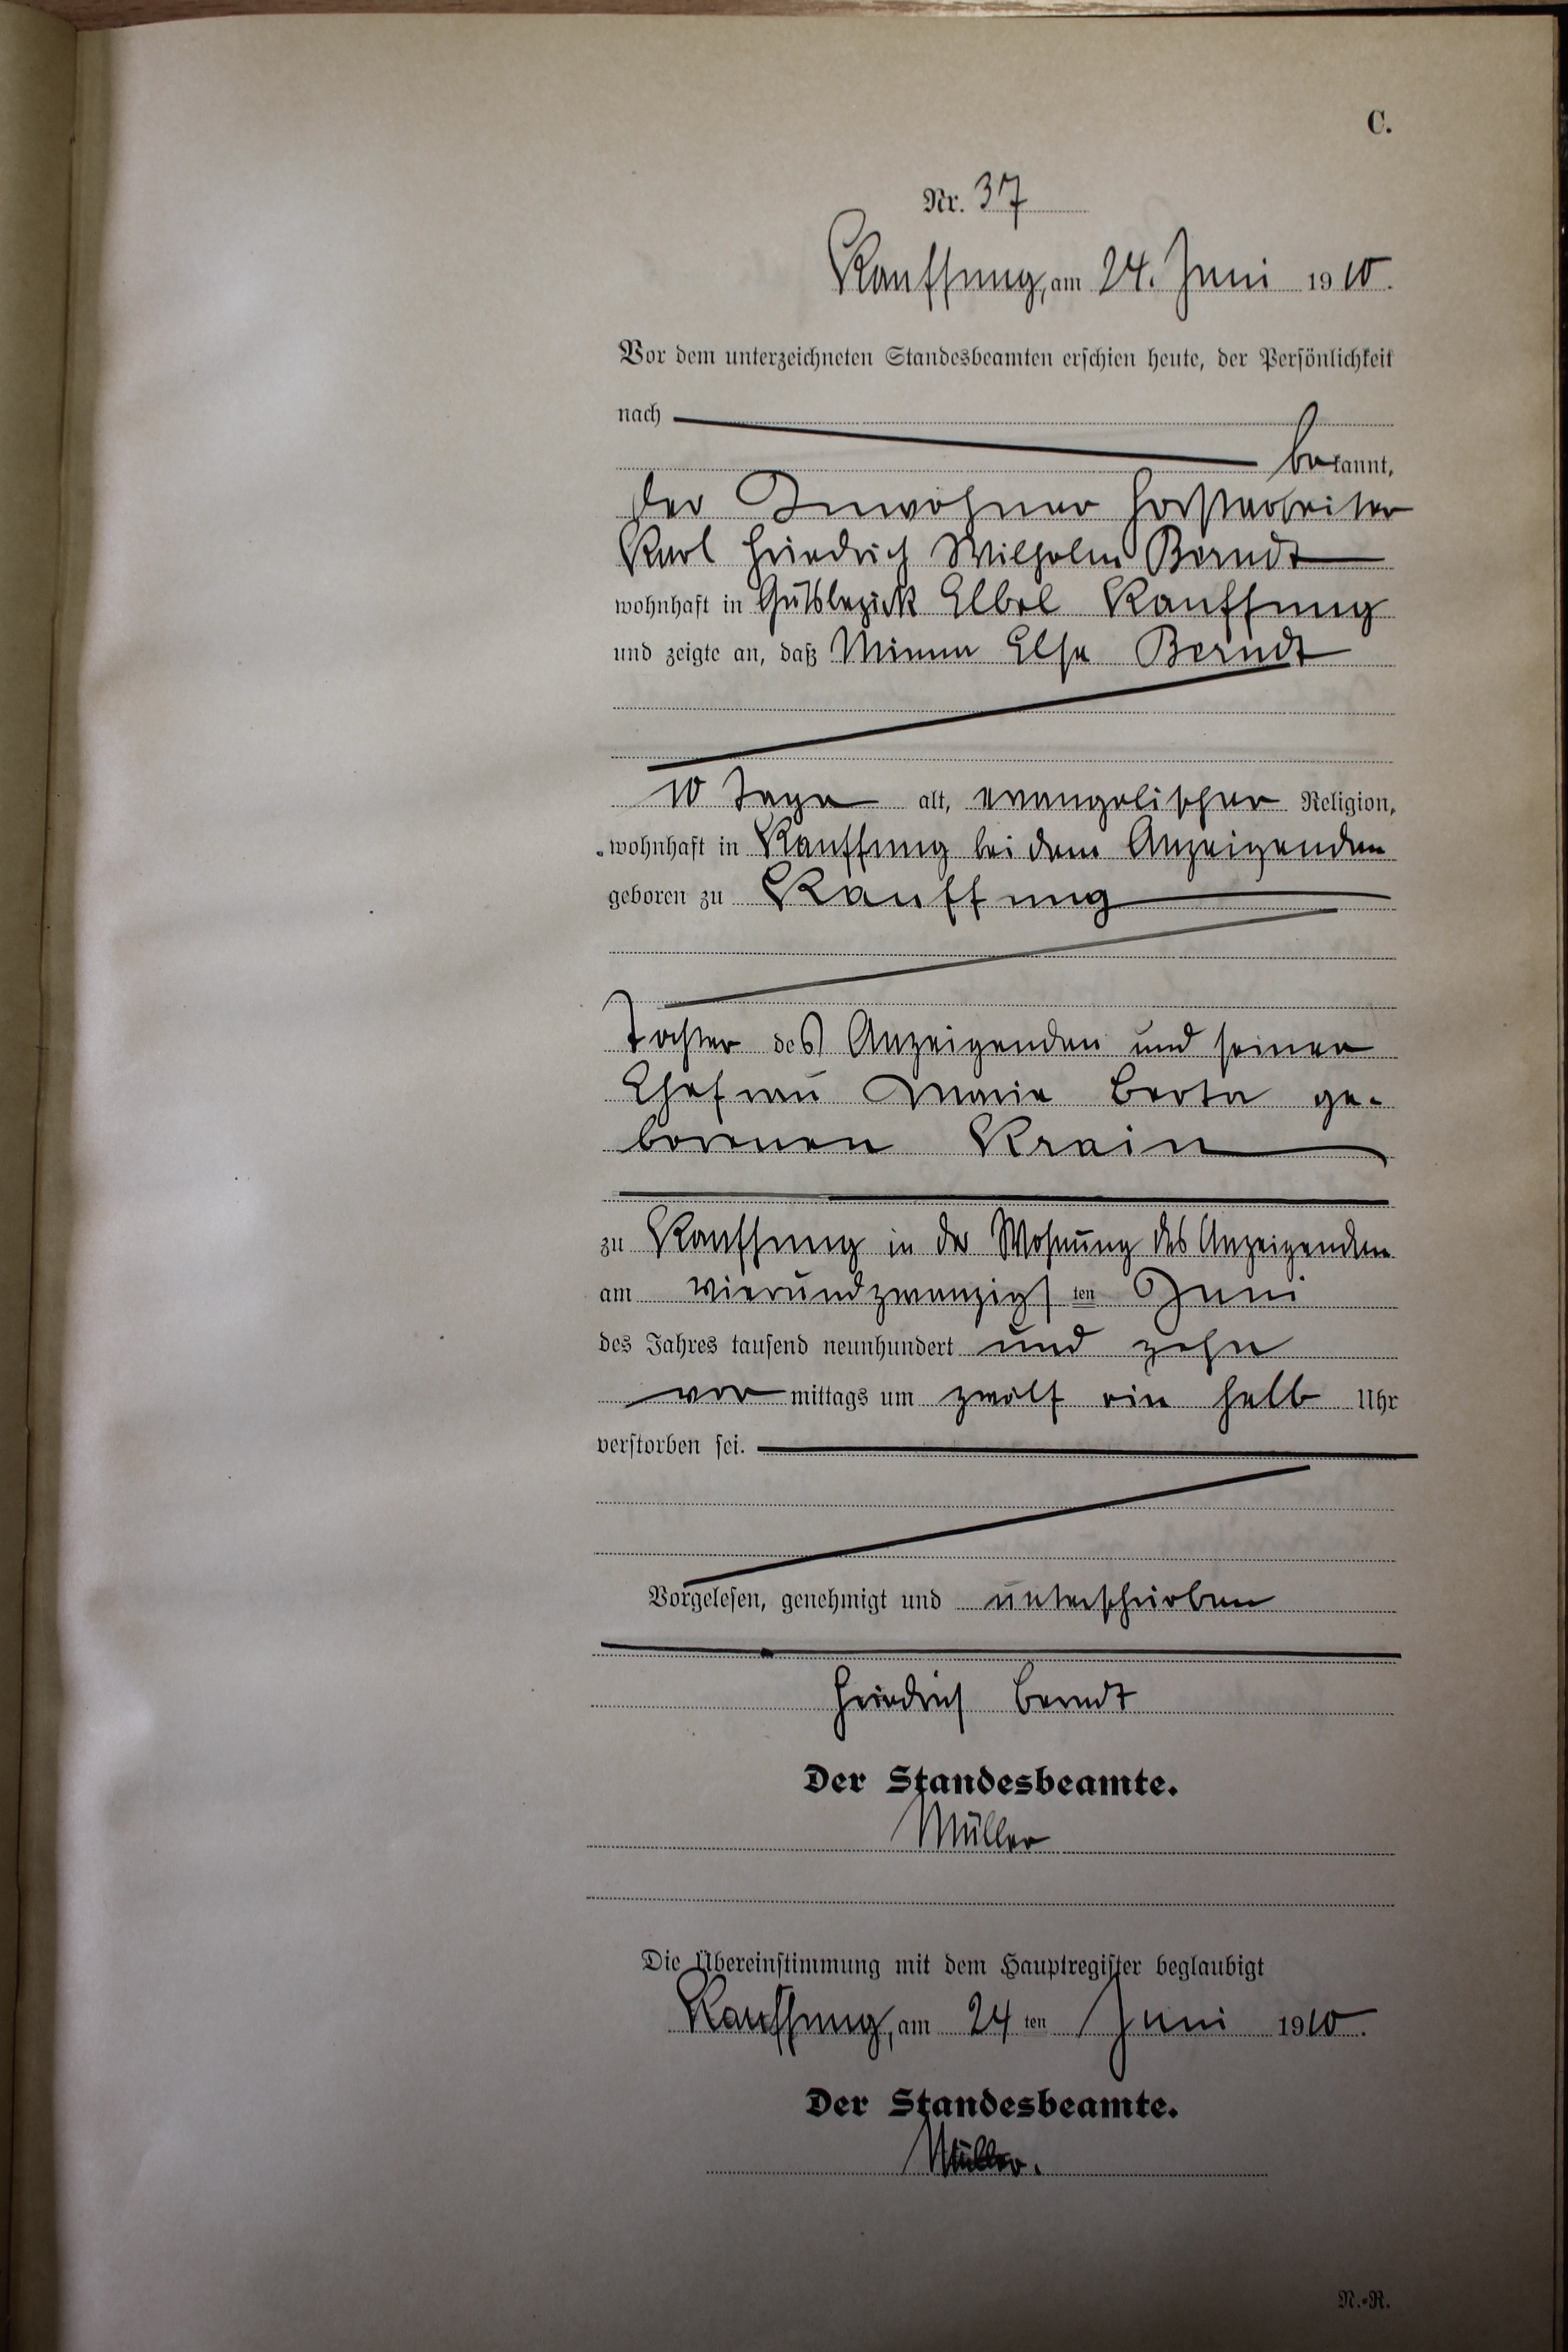 C.
Nr. 37
Kauffung, am 24. Juni 1910.
Vor dem unterzeichneten Standesbeamten erschien heute, der Persönlichkeit
nach
bekannt,
der Inwohner Forstarbeiter
Karl Friedrich Wilhelm Berndt
wohnhaft in Gutsbezirk Elbel Kauffung
und zeigte an, daß Minna Else Berndt
10 Tage alt, evangelischer Religion,
wohnhaft in Kauffung bei dem Anzeigenden
geboren zu Kauffung
Tochter des Anzeigenden und seiner
Ehefrau Marie Berta ge-
borenen Krain
zu Kauffung in der Wohnung des Anzeigenden
am vierundzwanzigsten Juni
des Jahres tausend neunhundert und zehn
vormittags um zwölf ein halb Uhr
verstorben sei.
Vorgelesen, genehmigt und unterschrieben
Friedrich Berndt
Der Standesbeamte.
Müller
Die Übereinstimmung mit dem Hauptregister beglaubigt
Kauffung, am 24ten Juni 1910.
Der Standesbeamte.
Müller.
N.-R.